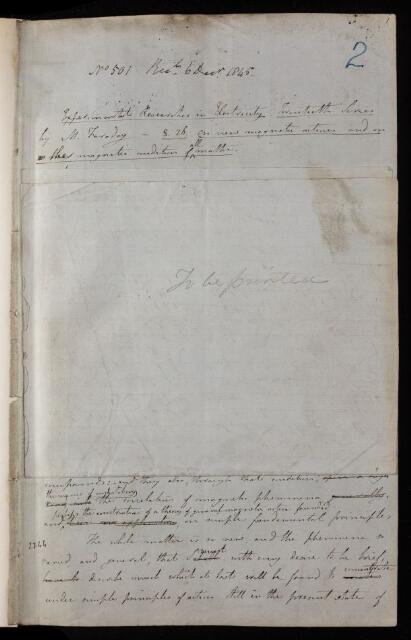 2
No 501 Recd. 6 Decr. 1845
Experimental Researches in Electricity Twentieth Series
by M. Faraday - § 26 On new magnetic actions and on
the magnetic condition of all matter.
To be printed
compounds: and they also, through that condition,
the means of
the correlation of magnetic phenomena
perhaps the construction of a theory of general magnetic action founded
on simple fundamental principles.
2244 The whole matter is so new, and the phenomena so
varied and general, that I cannot with every desire to be brief,
describe much which at last will be found to
under simple principles of action. Still in the present state of